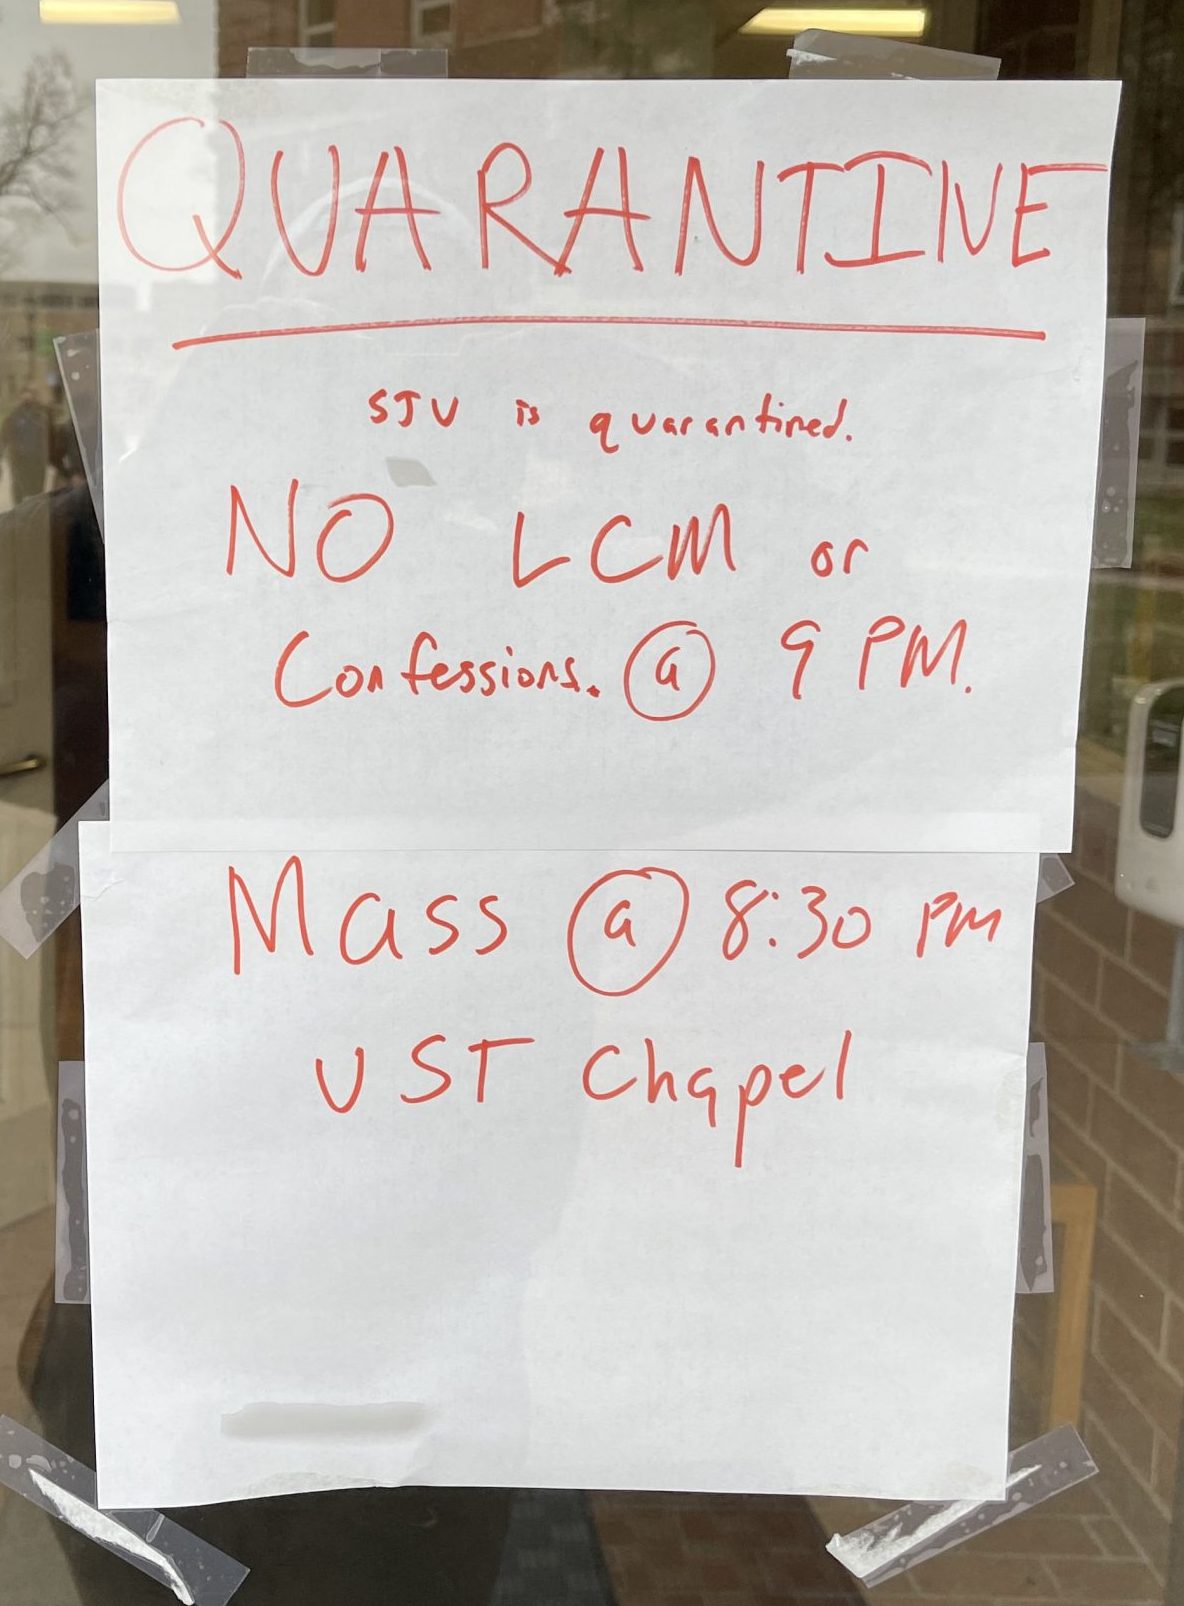 QUARANTINE
SJV is quarantined.
NO LCM or
Confessions. @ 9 PM.
Mass @ 8:30 PM
UST Chapel